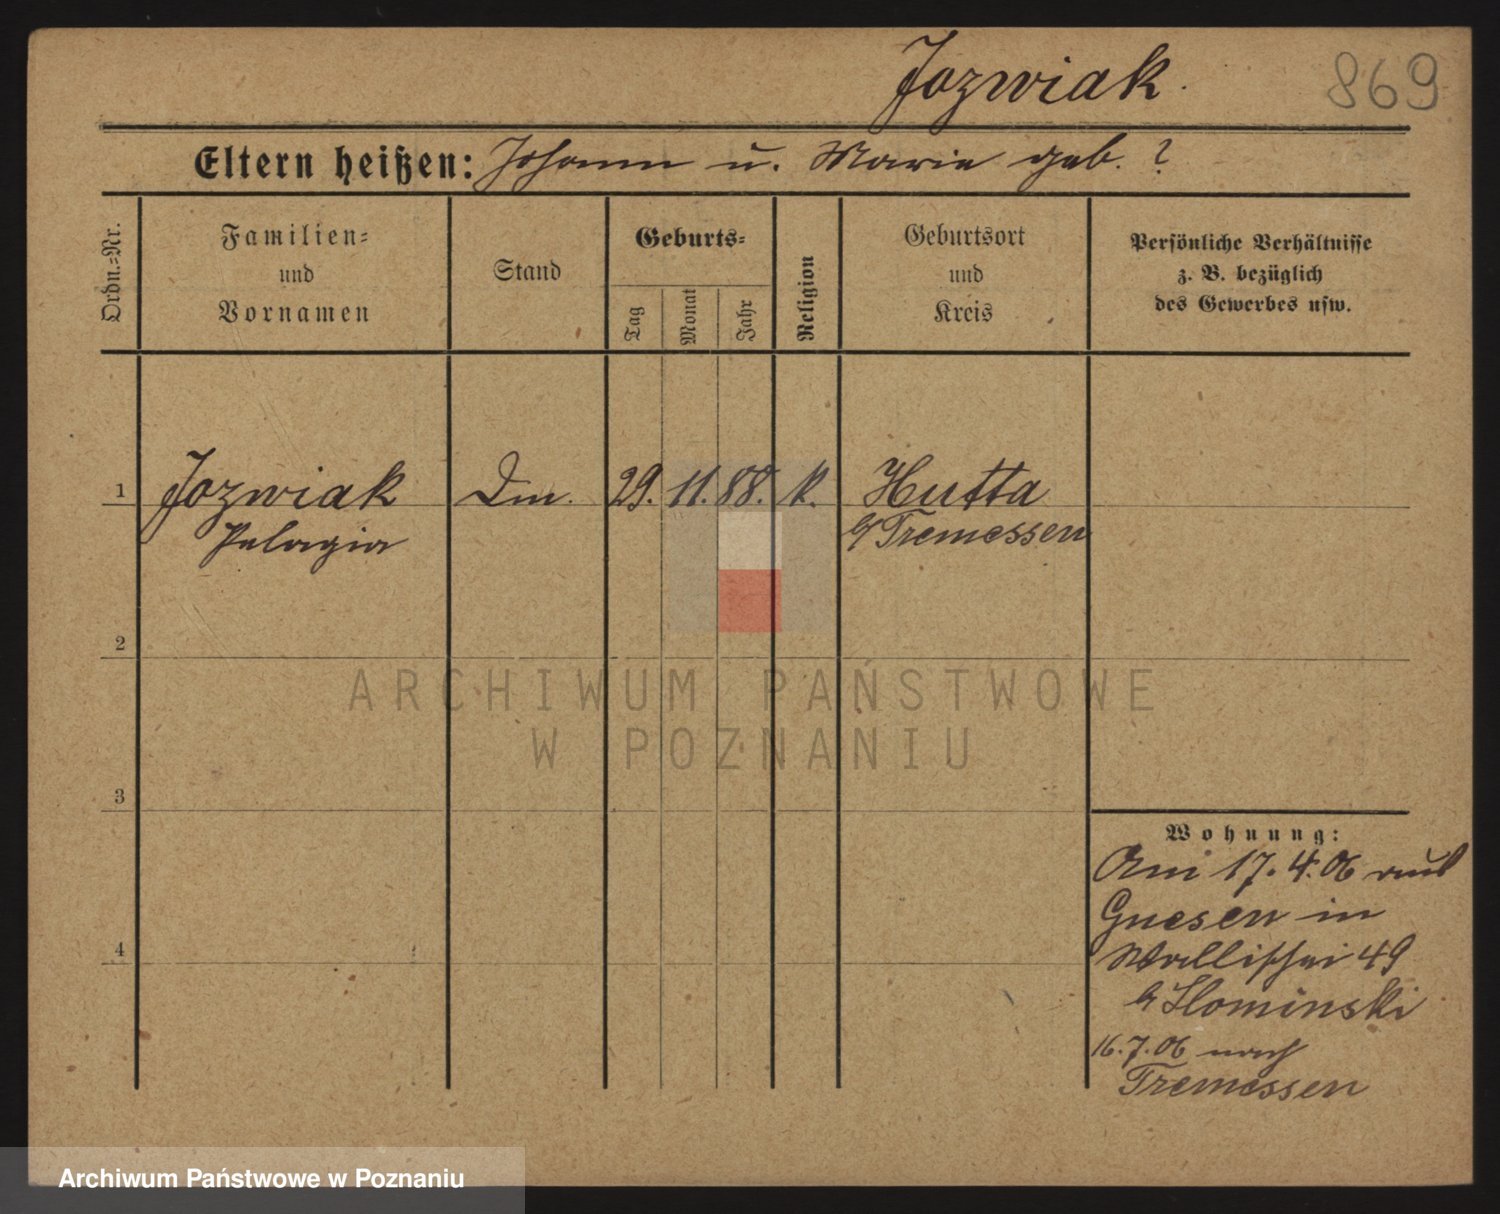 Jozwiak.
869
Eltern heißen: Johann u. Marie geb. ?
Ordn.-Nr.
Familien-
und
Vornamen
Stand
Geburts-
Tag
Monat
Jahr
Religion
Geburtsort
und
Kreis
Persönliche Verhältnisse
z. B. bezüglich
des Gewerbes usw.
1 Jozwiak Dm. 29. 11. 88. k. Hutta
Pelagia
Tremessen
2
3
4
Wohnung:
Am 17.4.06 aus
Gnesen in
Wallischei 49
b/ Slominski
16.7.06 nach
Tremessen
ARCHIWUM PAŃSTWOWE
W POZNANIU
Archiwum Państwowe w Poznaniu